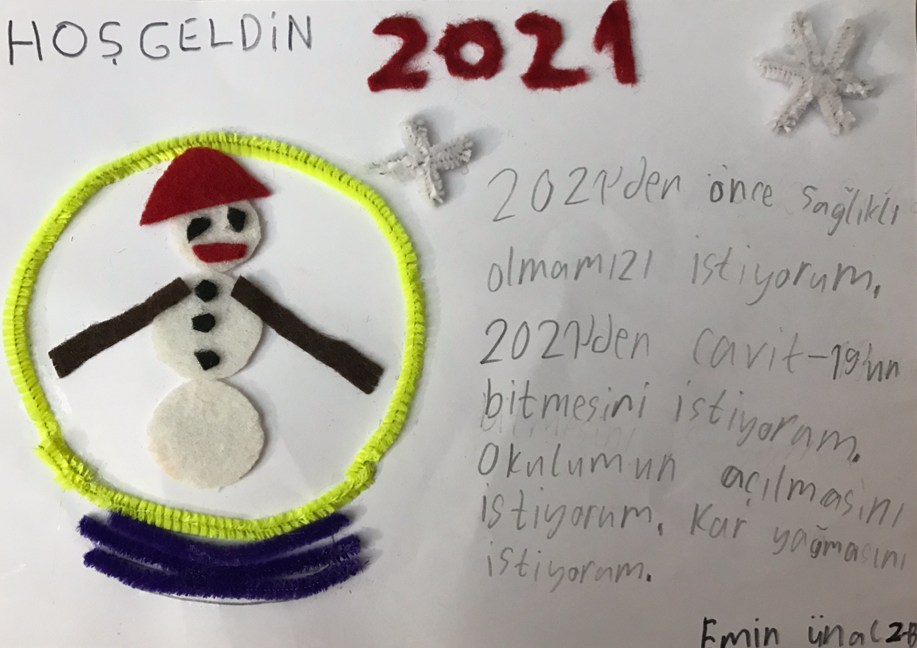 HOŞGELDİN 2021
2021'den önce sağlıklı
olmamızı istiyorum.
2021'den cavit-19'un
bitmesini istiyorum.
Okulumun açılmasını
istiyorum. Kar yağmasını
istiyorum.
Emin ünal 2-B